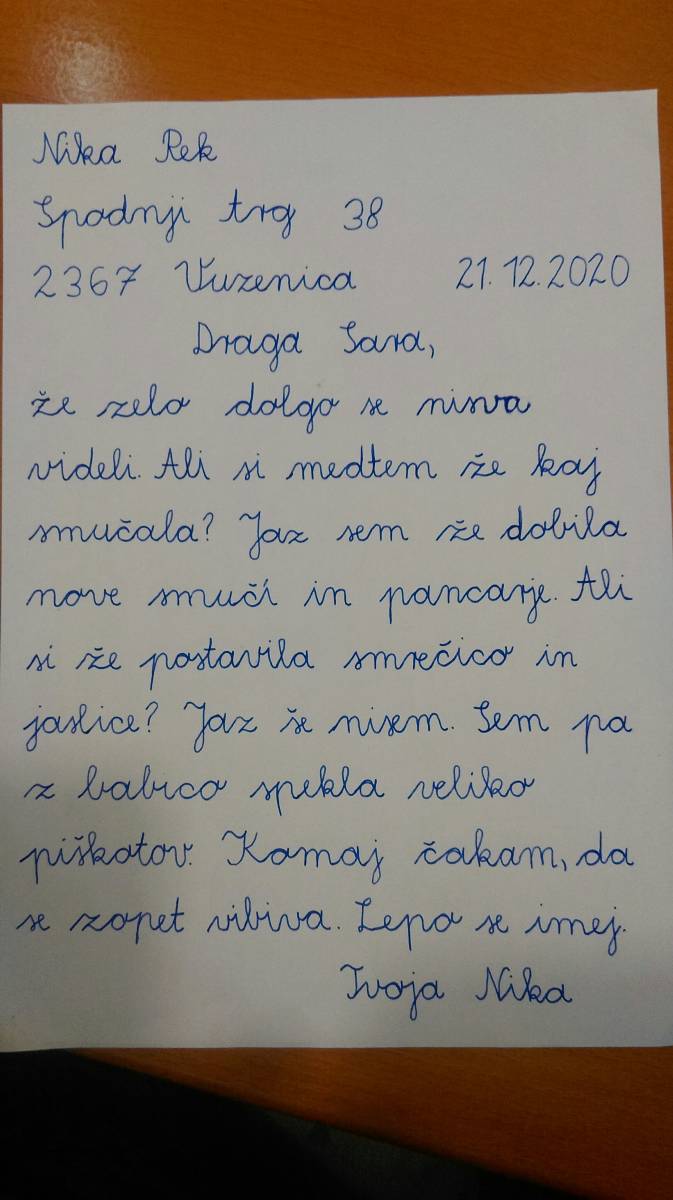 Nika Rek
Spodnji trg 38
2367 Vuzenica 21.12.2020
Draga Sara,
že zelo dolgo se nisva
videli. Ali si medtem že kaj
smučala? Jaz sem že dobila
nove smuči in pancarje. Ali
si že postavila smrečico in
jaslice? Jaz še nisem. Sem pa
z babico spekla veliko
piškotov. Komaj čakam, da
se zopet vibiva. Lepo se imej.
Tvoja Nika